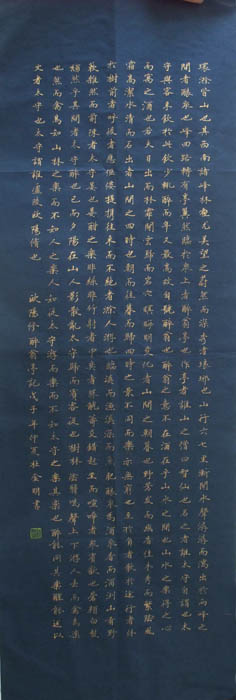 環滁皆山也其西南諸峰林壑尤美望之蔚然而深秀者瑯琊也山行六七里漸聞水聲潺潺而瀉出於兩峰之
間者釀泉也峰回路轉有亭翼然臨於泉上者醉翁亭也作亭者誰山之僧曰智仙也名之者誰太守自謂也太
守與客來飲於此飲少輒醉而年又最高故自號醉翁也醉翁之意不在酒在乎山水之間也山水之樂得之心
而寓之酒也若夫日出而林霏開雲歸而岩穴暝晦明變化者山間之朝暮也野芳發而幽香佳木秀而繁陰風
霜高潔水清而石出者山間之四時也朝而往暮而歸四時之景不同而樂亦無窮也至於負者歌於途行者休
於樹前者呼後者應傴僂提攜往來而不絕者滁人遊也臨溪而漁溪深而魚肥釀泉為酒泉香而酒洌山肴野
蔌雜然而前陳者太守宴也宴酣之樂非絲非竹射者中弈者勝觥籌交錯起坐而喧嘩者眾賓歡也蒼顏白髮
頹然乎其間者太守醉也已而夕陽在山人影散亂太守歸而賓客從也樹林陰翳鳴聲上下遊人去而禽鳥樂
也然而禽鳥知山林之樂而不知人之樂人知從太守遊而樂而不知太守之樂其樂也醉能同其樂醒能述以
文者太守也太守謂誰廬陵歐陽脩也
歐陽修醉翁亭記戊子年仲夏杜金明書